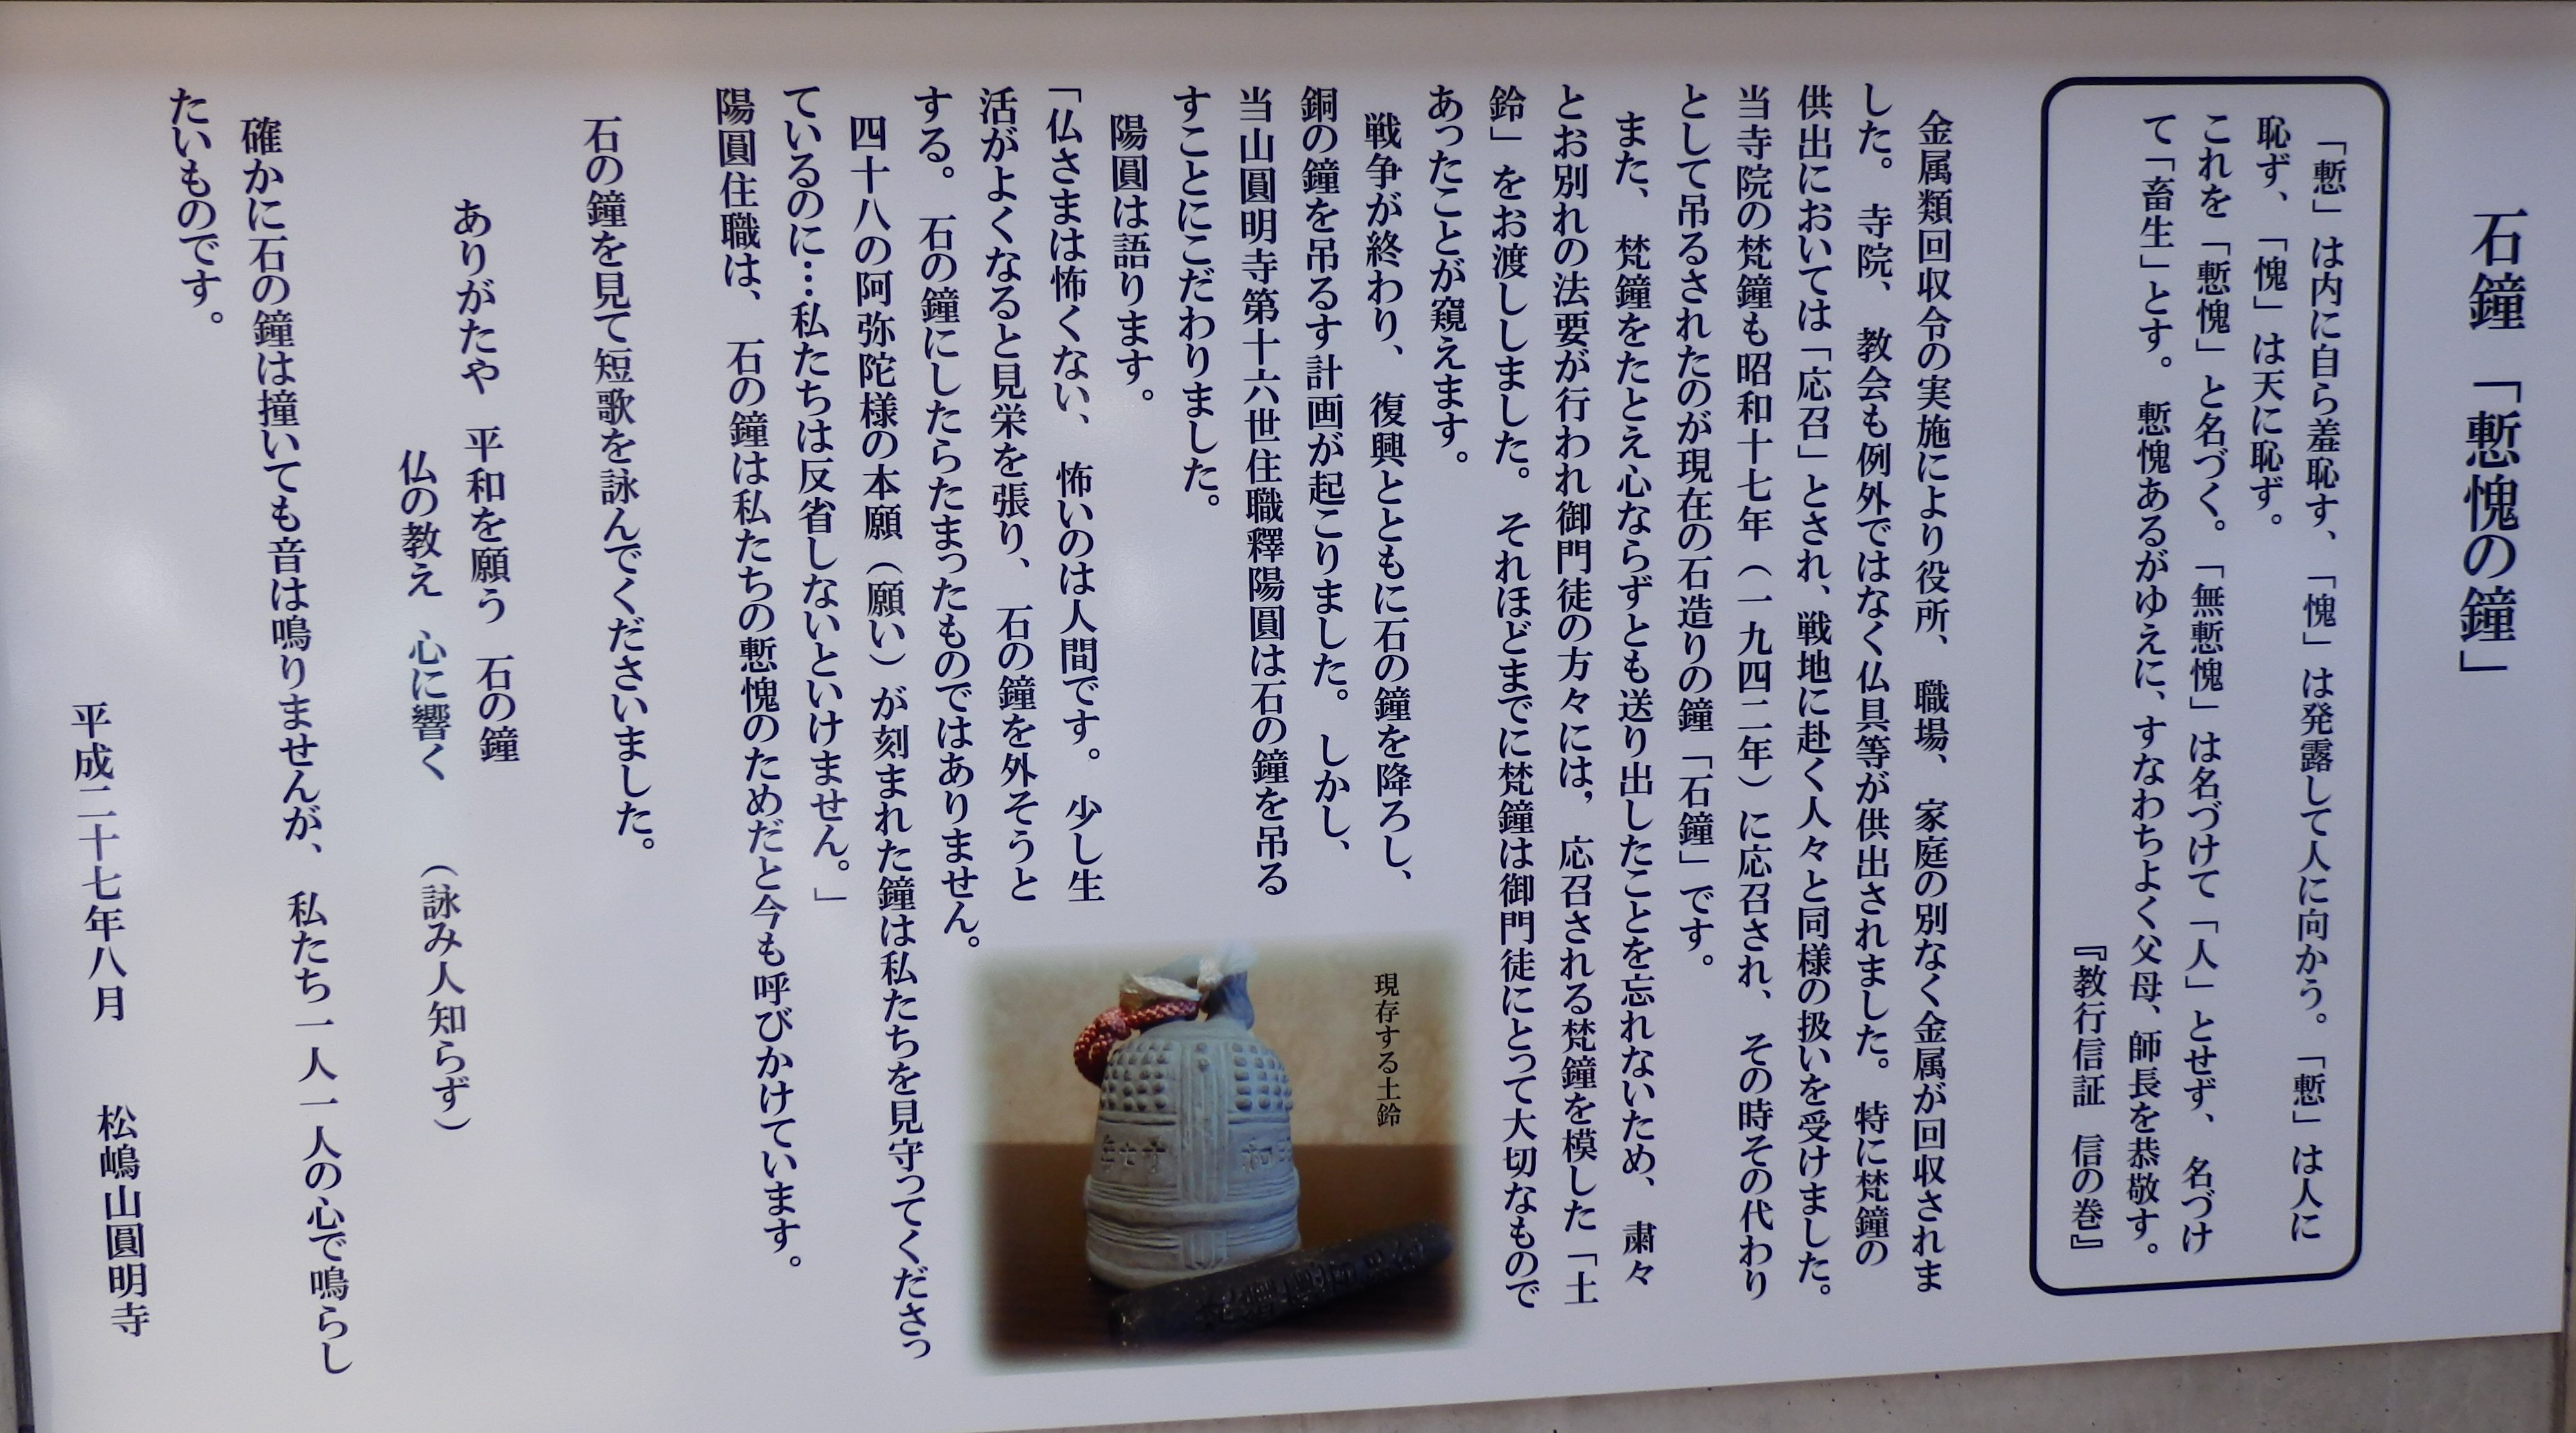 石鐘 「慙愧の鐘」
「慙」は内に自ら羞恥す、「愧」は発露して人に向かう。「慙」は人に
恥ず、「愧」は天に恥ず。
これを「慙愧」と名づく。「無慙愧」は名づけて「人」とせず、名づけ
て「畜生」とす。慙愧あるがゆえに、すなわちよく父母、師長を恭敬す。
『教行信証 信の巻』
金属類回収令の実施により役所、職場、家庭の別なく金属が回収されま
した。寺院、教会も例外ではなく仏具等が供出されました。特に梵鐘の
供出においては「応召」とされ、戦地に赴く人々と同様の扱いを受けました。
当寺院の梵鐘も昭和十七年（一九四二年）に応召され、その時その代わり
として吊るされたのが現在の石造りの鐘「石鐘」です。
また、梵鐘をたとえ心ならずとも送り出したことを忘れないため、粛々
とお別れの法要が行われ御門徒の方々には，応召される梵鐘を模した「土
鈴」をお渡ししました。それほどまでに梵鐘は御門徒にとって大切なもので
あったことが窺えます。
戦争が終わり、復興とともに石の鐘を降ろし、
銅の鐘を吊るす計画が起こりました。しかし、
当山圓明寺第十六世住職釋陽圓は石の鐘を吊る
すことにこだわりました。
陽圓は語ります。
「仏さまは怖くない、怖いのは人間です。少し生
活がよくなると見栄を張り、石の鐘を外そうと
する。石の鐘にしたらたまったものではありません。
四十八の阿弥陀様の本願（願い）が刻まれた鐘は私たちを見守ってくださっ
ているのに…私たちは反省しないといけません。」
陽圓住職は、石の鐘は私たちの慙愧のためだと今も呼びかけています。
現存する土鈴
石の鐘を見て短歌を詠んでくださいました。
ありがたや 平和を願う 石の鐘
仏の教え 心に響く （詠み人知らず）
確かに石の鐘は撞いても音は鳴りませんが、私たち一人一人の心で鳴らし
たいものです。
平成二十七年八月 松嶋山圓明寺